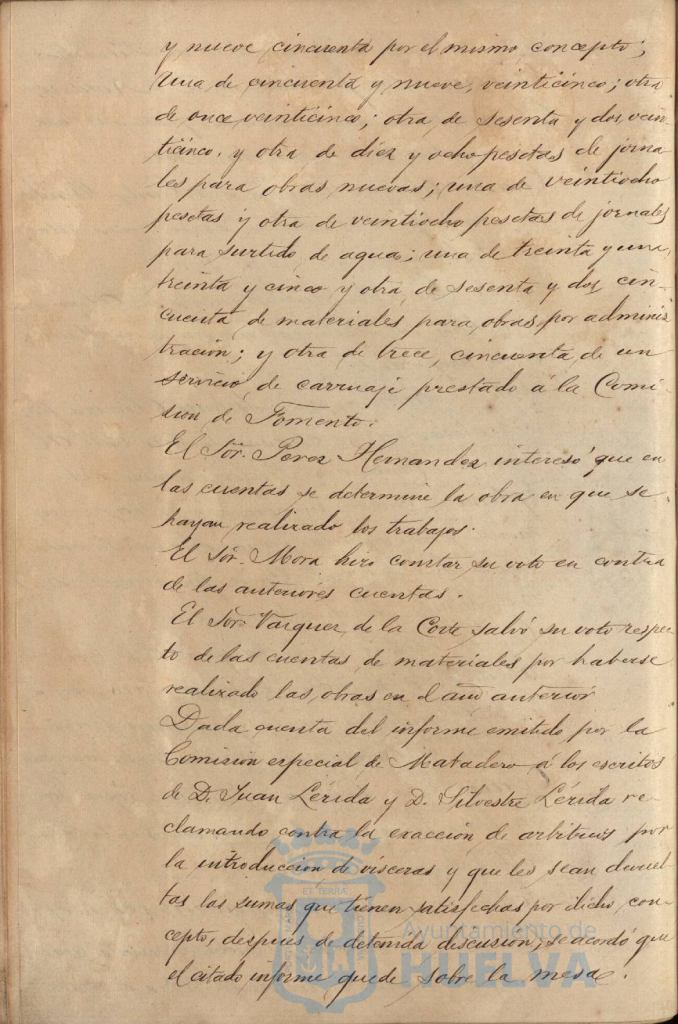 y nueve cincuenta por el mismo concepto;
una de cincuenta y nueve, veinticinco; otra
de once veinticinco; otra de sesenta y dos, vein-
ticinco, y otra de diez y ocho pesetas de jorna
les para obras nuevas; una de veintiocho
pesetas y otra de veintiocho pesetas de jornales
para surtido de agua; una de treinta y una
treinta y cinco y otra de sesenta y dos, cin-
cuenta, de materiales para obras por adminis
tracion; y otra de trece, cincuenta, de un
servicio de carruaje prestado á la Comi-
sion de Fomento.
El Sor. Perez Hernandez interesó que en
las cuentas se determine la obra en que se
hayan realizado los trabajos.
El Sor. Mora hizo constar su voto en contra
de las anteriores cuentas.
El Sor. Vazquez de la Corte salvó su voto respec
to de las cuentas de materiales por haberse
realizado las obras en el año anterior
Dada cuenta del informe emitido por la
Comision especial de Matadero á los escritos
de D. Juan Lérida y D. Silvestre Lérida re-
clamando contra la exaccion de arbitrios por
la introduccion de vísceras y que les sean devuel
tas las sumas que tienen satisfechas por dicho con-
cepto, despues de detenida discusion, se acordó que
el citado informe quede sobre la mesa.
ET TERRÆ
Ayuntamiento de
HUELVA